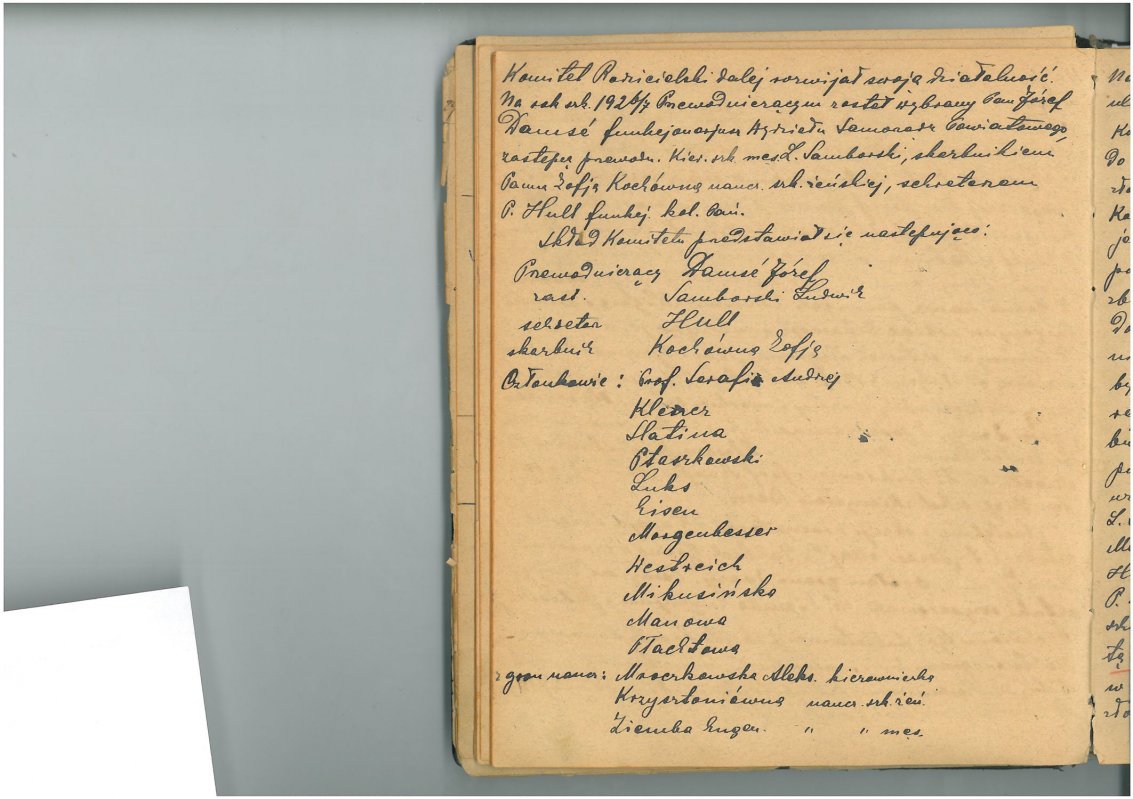 Komitet Rodzicielski dalej rozwijał swoją działalność.
Na rok szk. 1926/7 Przewodniczącym został wybrany Pan Józef
Damsé funkcjonarjusz Wydziału Samorządz Powiatowego,
zastępcą przewodn. Kier. szk. męs. L. Samborski, skarbnikiem
Panna Zofją Kochówną naucz. szk. żeńskiej, sekretarzem
P. Hull funkcj. kol. Pań.
Skład Komitetu przedstawiał się następująco:
Przewodniczący Damsé Józef
zast. Samborski Ludwik
sekretar Hull
skarbnik Kochówną Zofją
Członkowie: Prof. Serafin Andrzej
Slatina
Ptaszkowski
Luks
Eisen
Morgenbesser
Westreich
Mikusińska
Manowa
Płachtową
z gron naucz: Mroczkowska Aleks. kierowniczka
Krzysztoniówną naucz. szk. żeń.
Ziemba Eugen. " " męs.